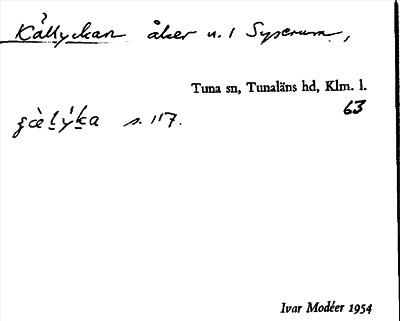 Källyckan åker u. 1 Syserum,
Tuna sn, Tunaläns hd, Klm. l.
63
s. 117.
Ivar Modéer 1954